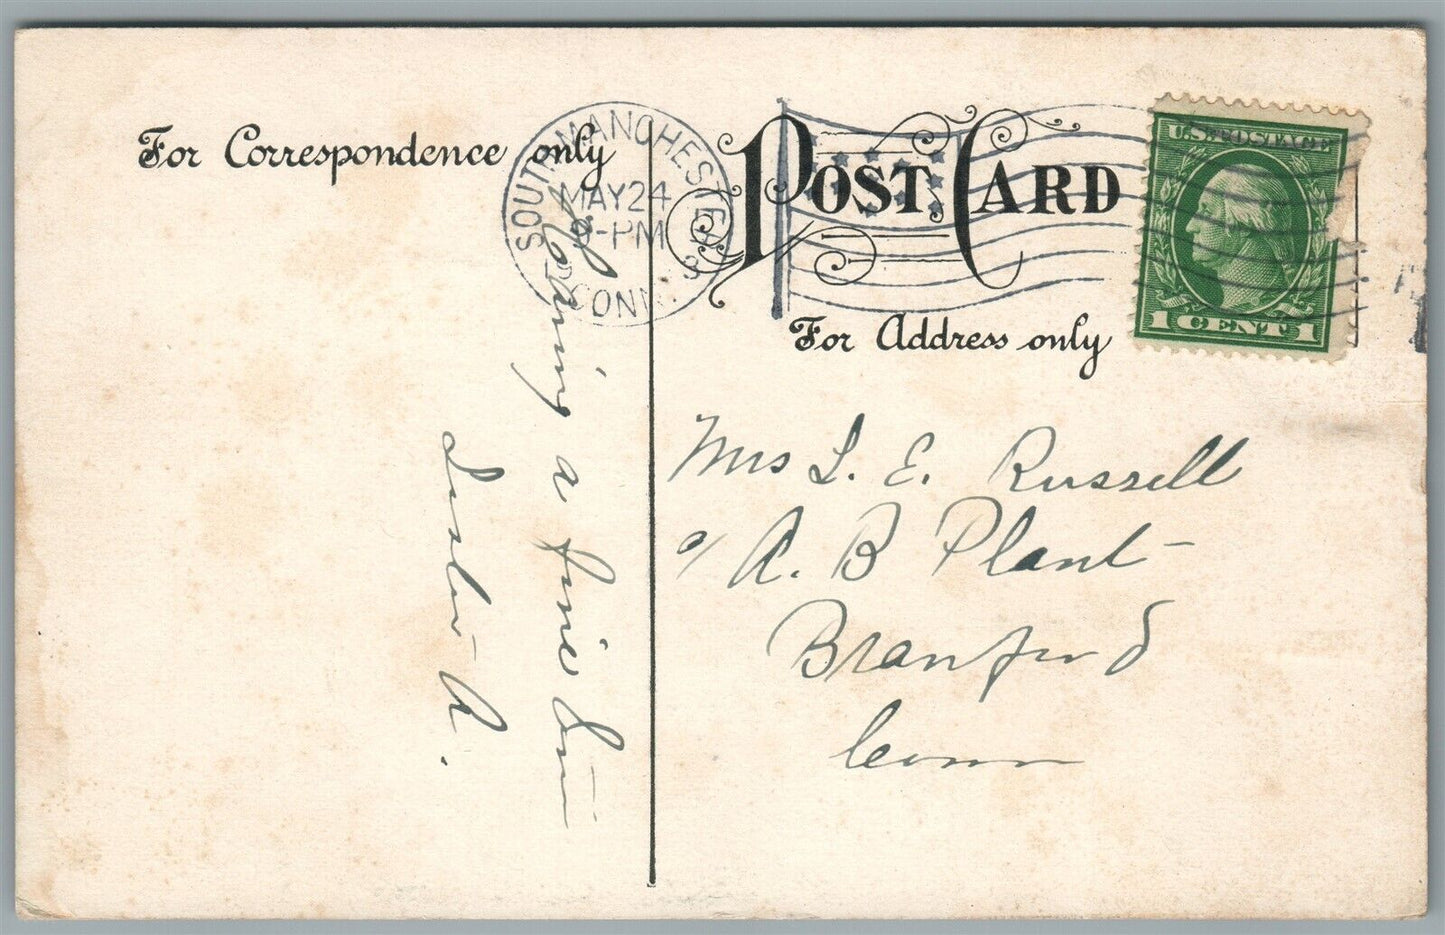 For Correspondence only
POST CARD
For Address only
SOUTH MANCHESTER
MAY 24
-PM
CONN.
U.S. POSTAGE
1 CENT 1
Having a fine time
Lester A.
Mrs L. E. Russell
c/ A. B Plant-
Branford
Conn